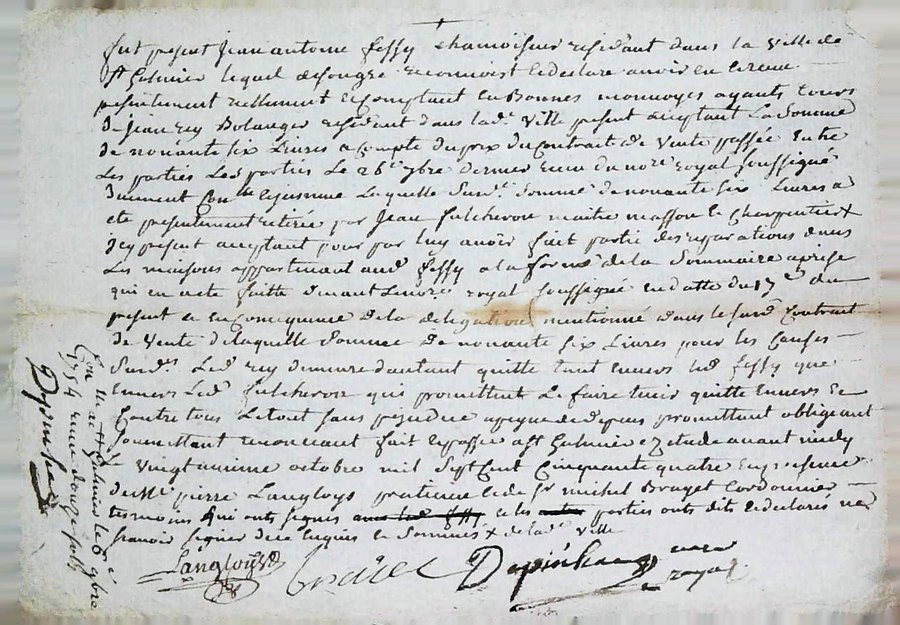 fut present Jean antoine fessy chamoiseur residant dans la ville de
st Galmier lequel de son gre reconnoist et declare avoir eu et receu
presentement reellement et comptant en Bonnes monnoyes ayants cours
de jean rey Bolanger resident dans lade ville present acceptant La somme
de nonante six Livres a compte du prix du Contrait de Vente passée entre
Les parties Les parties Le 26e 7bre dernier receu du nore royal soussigné
duement Conlle Laquelle surde somme de nonante six Livres a
eté presentement retirée par Jean fulcheron maitre masson et Charpentier
icy present acceptant pour par luy avoir fait partie des reparations dans
Les maisons appartenant aud fessy a la forme de la sommaire aprise
qui en acte faitte devant Le nore royal soussigné en datte du 17e du
present et en Consequence de la delegation mentionné dans le surd Contrait
de Vente de laquelle somme de nonante six Livres pour les Causes
surdes Led rey demeure d'autant quitte tant envers led fessy que
Envers Led fulcheron qui promettent Le faire tenir quitte envers et
Contre tous Le tout sans prejudice a peyne de depens promettant obligeant
soumettant renonceant fait et passé a st Galmier etude avant midy
Le vingt unieme octobre mil sept Cent Cinquante quatre en presence
de Me pierre Langloys praticien et de sr michel Brayet Cordonnier
tesmoins qui onts signés et les parties onts dits et declarés ne
sçavoir signer de ce enquis et sommés de lade ville
Langloys
Depinhac nore
royal
Con lle a st Galmier le 6e 9bre
1754 receu douze sols
Depinhac